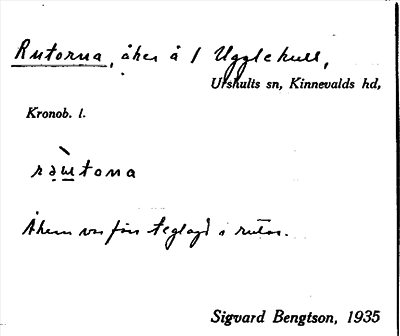 Rutorna, åker å 1 Ugglekull,
Urshults sn, Kinnevalds hd,
Kronob. l.
Åkern var förr teglagd i rutor.
Sigvard Bengtson, 1935